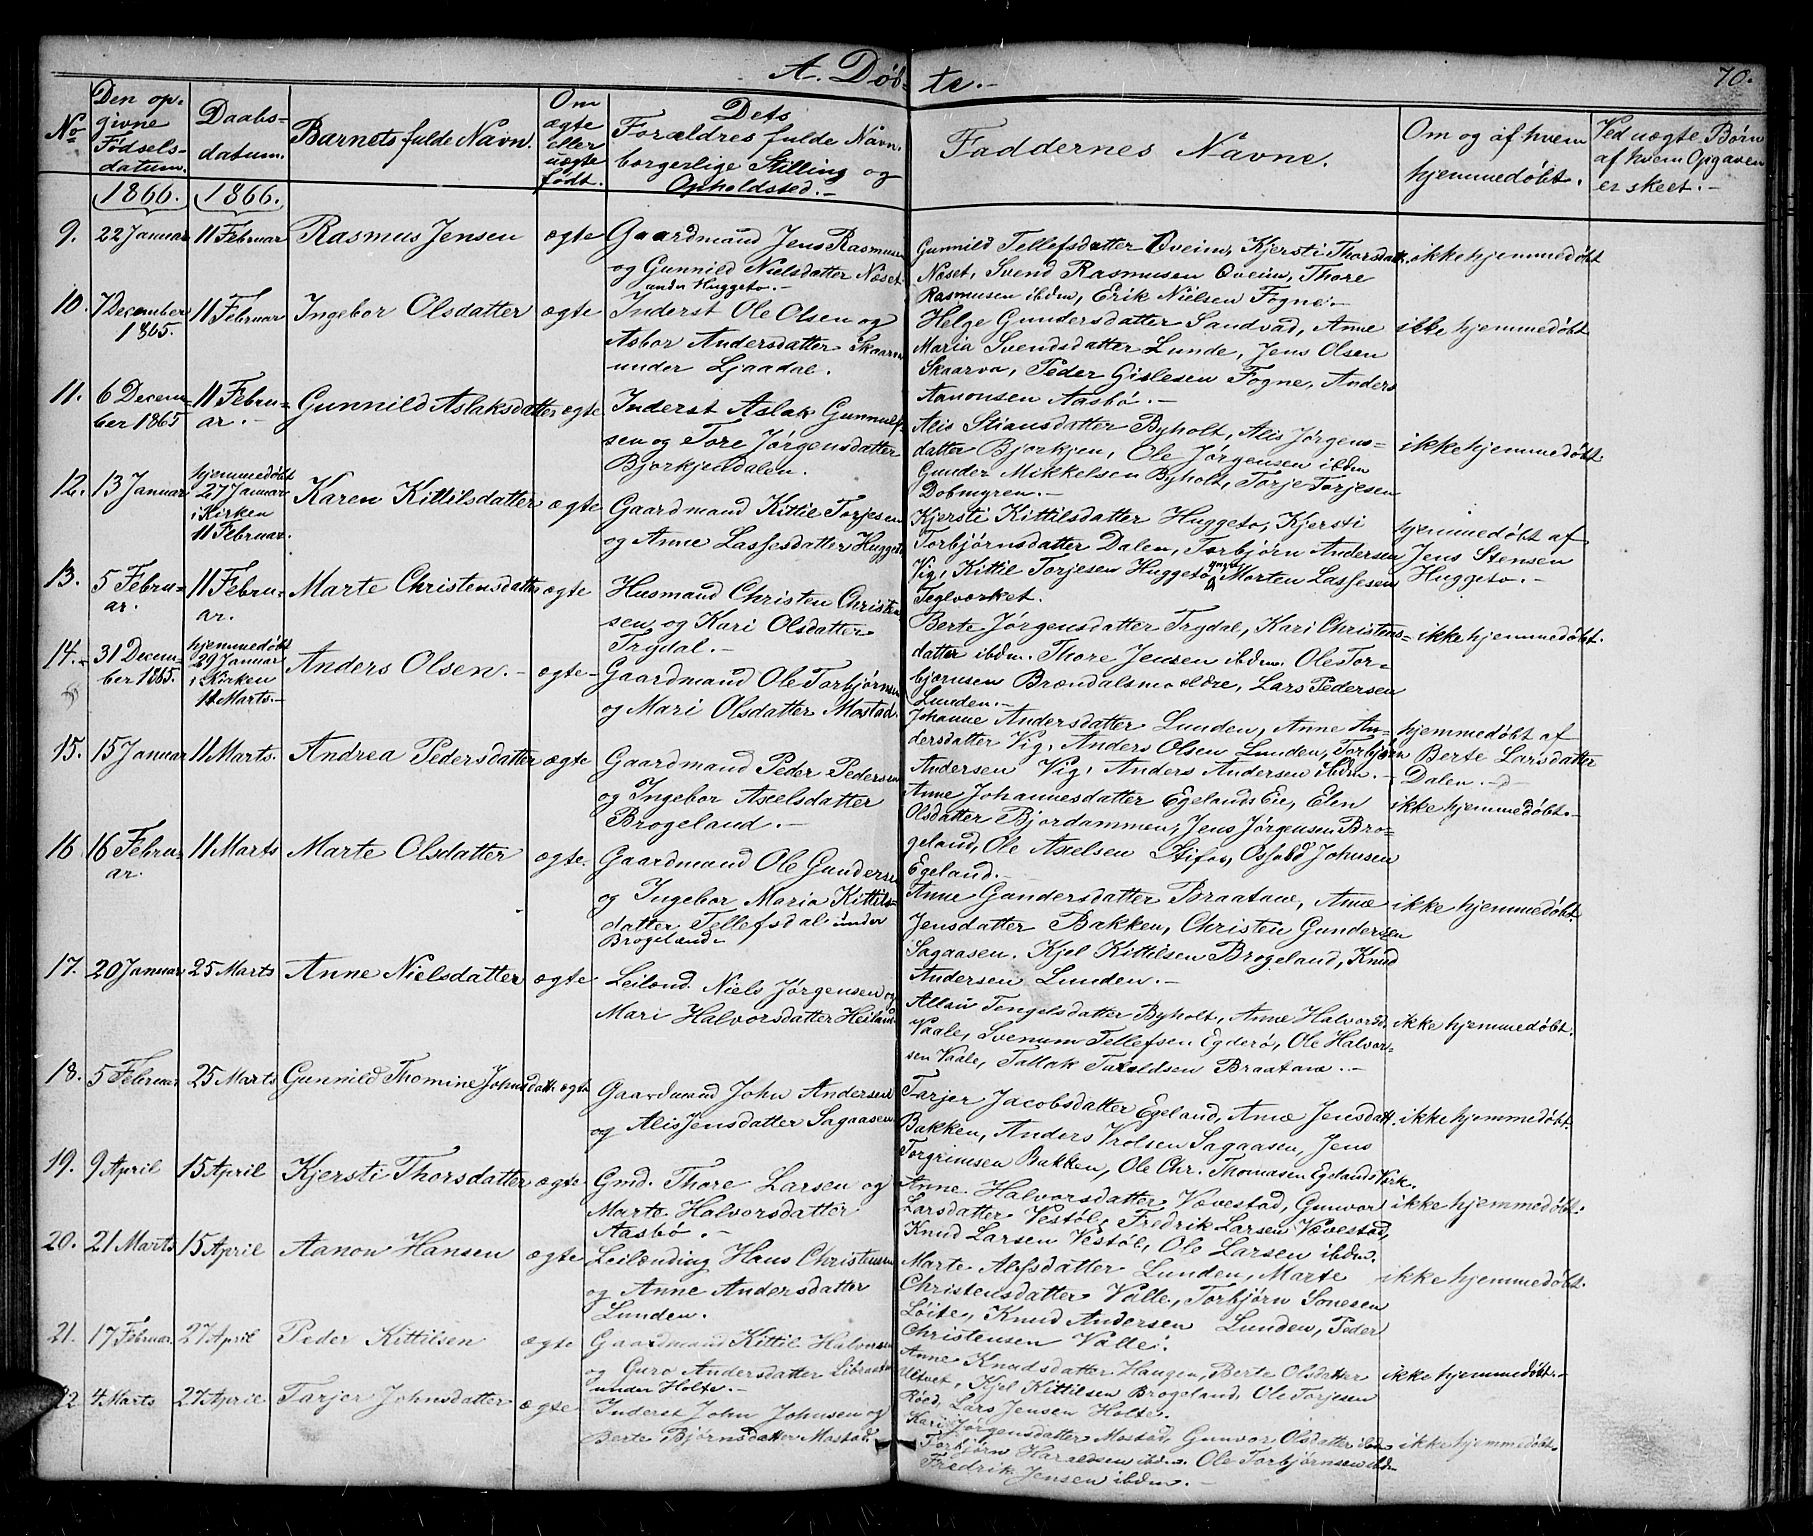 A. Døb-
te.-
70.
No
Den op-
givne
Fødsels-
datum.
Daabs-
datum.
Barnets fulde Navn.
Om
ægte
eller
uægte
født.
Dets
Forældres fulde Navn
borgerlige Stilling og
Opholdssted.-
Faddernes Navne.
Om og af hvem
hjemmedøbt.
Ved uægte Børn
af hvem Opgaven
er skeet.-
1866.
1866.
9.
22 Januar
11 Februar
Rasmus Jensen
ægte
Gaardmand Jens Rasmusen
og Gunnild Nielsdatter Næset
under Huggeto.-
Gunnild Tellefsdatter Oveim, Kjersti Thorsdatt.
Næset, Svend Rasmusen Oveim, Thore
Rasmusen ibdm, Erik Nielsen Fogne.-
ikke hjemmedøbt
10.
7 December
1865.
11 Februar
Ingebor Olsdatter
ægte
Inderst Ole Olsen og
Asbor Andersdatter Skaarva
under Ljaadal.
Helge Gundersdatter Sandvad, Anne
Maria Svendsdatter Lunde, Jens Olsen
Skaarva, Peder Gislesen Fogne, Anders
Aanonsen Aasbø.-
ikke hjemmedøbt
11.
6 Decem-
ber 1865
11 Febru-
ar.-
Gunnild Aslaksdatter
ægte
Inderst Aslak Gunnulf-
sen og Tore Jørgensdatter
Bjorkjendalen.
Alis Stiansdatter Byholt, Alis Jørgens-
datter Bjorkjen, Ole Jørgensen ibdm
Gunder Mikkelsen Byholt, Torje Torjesen
Dobmyren.-
ikke hjemmedøbt
12.
13 Januar
hjemmedøbt
27 Januar
i Kirken
11 Februar.
Karen Kittilsdatter
ægte
Gaardmand Kittil Torjesen
og Anne Lassesdatter Huggeto
Kjersti Kittilsdatter Huggeto, Kjersti
Torbjørnsdatter Dalen, Torbjørn Andersen
Vig, Kittil Torjesen Huggeto Morten Lassesen
Teglværket.
hjemmedøbt af
Jens Stensen
Huggeto.-
13.
5 Febru-
ar.
11 Febru-
ar.
Marte Christensdatter
ægte
Husmand Christen Christen-
sen og Kari Olsdatter
Trydal.-
Berte Jørgensdatter Trydal, Kari Christens-
datter ibdm. Thore Jensen ibdm. Ole Tor-
bjørnsen Brændalsmo ældre, Lars Pedersen
Lunden.-
ikke hjemmedøbt.
14.
31 Decem-
ber 1865.
hjemmedøbt
29 Januar
i Kirken
11 Marts.-
Anders Olsen.-
ægte-
Gaardmand Ole Torbjørnsen
og Mari Olsdatter Mostad.
Johanne Andersdatter Lunden, Anne An-
dersdatter Vig, Anders Olsen Lunden, Torbjørn
Andersen Vig, Anders Andersen ibdm.-
hjemmedøbt af
Berte Larsdatter
Dalen.-
15.
15 Januar
11 Marts.
Andrea Pedersdatter
ægte
Gaardmand Peder Pedersen
og Ingebor Axelsdatter
Brogeland.-
Anne Johannesdatter Egelands Eie, Elen
Olsdatter Bjordammen, Jens Jørgensen Bro-
geland, Ole Axelsen Stifos, Ossuld Johnsen
Egeland.-
ikke hjemmedøbt.-
16
16 Febru-
ar.
11 Marts
Marte Olsdatter
ægte.
Gaardmand Ole Gundersen
og Ingebor Maria Kittils-
datter Tellefsdal under
Brogeland.
Anne Gundersdatter Braatane, Anne
Jensdatter Bakken, Christen Gundersen
Sagaasen. Kjel Kittilsen Brogeland, Knud
Andersen Lunden.-
ikke hjemmedøbt
17.
20 Januar
25 Marts
Anne Nielsdatter
ægte
Leilænd. Niels Jørgensen og
Mari Halvorsdatter Heiland
Tengelsdatter Byholt, Anne Halvorsd.
Vaale, Svenum Tellefsen Egderø, Ole Halvor-
sen Vaale, Tallak Taraldsen Braatane.-
ikke hjemmedøbt.
18.
5 Februar
25 Marts
Gunnild Thomine Johnsdatt.
ægte
Gaardmand John Andersen
og Alis Jensdatter Sagaasen
Tarjer Jacobsdatter Egeland, Anne Jensdatt.
Bakken, Anders Vrolsen Sagaasen, Jens
Torgrimsen Bakken, Ole Chr. Thomasen Egelands Værk.
ikke hjemmedøbt.
19.
9 April
15 April
Kjersti Thorsdatter
ægte
Gmd. Thore Larsen og
Marte Halvorsdatter
Aasbø.-
Anne Halvorsdatter Vævestad, Gunvor
Larsdatter Vestøl, Fredrik Larsen Vævestad,
Knud Larsen Vestøl, Ole Larsen ibdm.
ikke hjemmedøbt.
20.
21 Marts
15 April
Aanon Hansen
ægte
Leilænding Hans Christensen
og Anne Andersdatter
Lunden.
Marte Alefsdatter Lunden, Marte
Christensdatter Valle, Torbjørn Sonesen
Løite, Knud Andersen Lunden, Peder
Christensen Valle.
ikke hjemmedøbt.
21.
17 Februar
27 April
Peder Kittilsen
ægte
Gaardmand Kittil Halvorsen
og Guro Andersdatter
under Holte.-
Anne Knudsdatter Haugen, Berte Olsdatter
Ulvet, Kjel Kittilsen Brogeland, Ole Torjesen
Røed, Lars Jensen Holte.
ikke hjemmedøbt.-
22
4 Marts
27 April
Tarjer Johnsdatter
ægte
Inderst John Johnsen og
Berte Bjørnsdatter Mostad
Kari Jørgensdatter Mostad, Gunvor Olsdatter ibdm
Torbjørn Haraldsen ibdm. Ole Torbjørnsen ibdm
Fredrik Jensen ibdm.-
ikke hjemmedøbt.